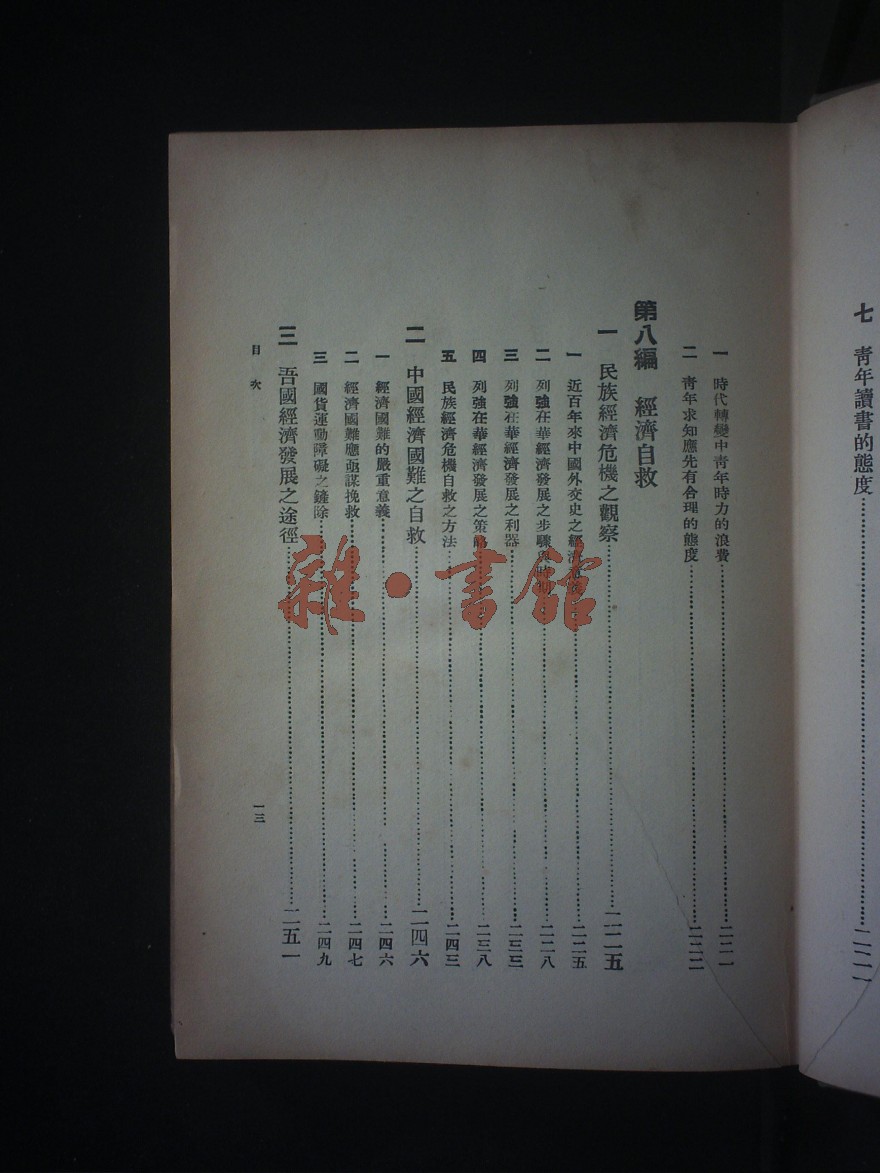 七　靑年讀書的態度……二二一
一　時代轉變中靑年時力的浪費……二二一
二　靑年求知應先有合理的態度……二二二
第八編　經濟自救
一　民族經濟危機之觀察……二二五
一　近百年來中國外交史之經濟……二二五
二　列強在華經濟發展之步驟與時期……二二八
三　列強在華經濟發展之利器……二三三
四　列強在華經濟發展之策略……二三八
五　民族經濟危機自救之方法……二四三
二　中國經濟國難之自救……二四六
一　經濟國難的嚴重意義……二四六
二　經濟國難應亟謀挽救……二四七
三　國貨運動障礙之鏟除……二四九
三　吾國經濟發展之途徑……二五一
目次
一三
雜·書館